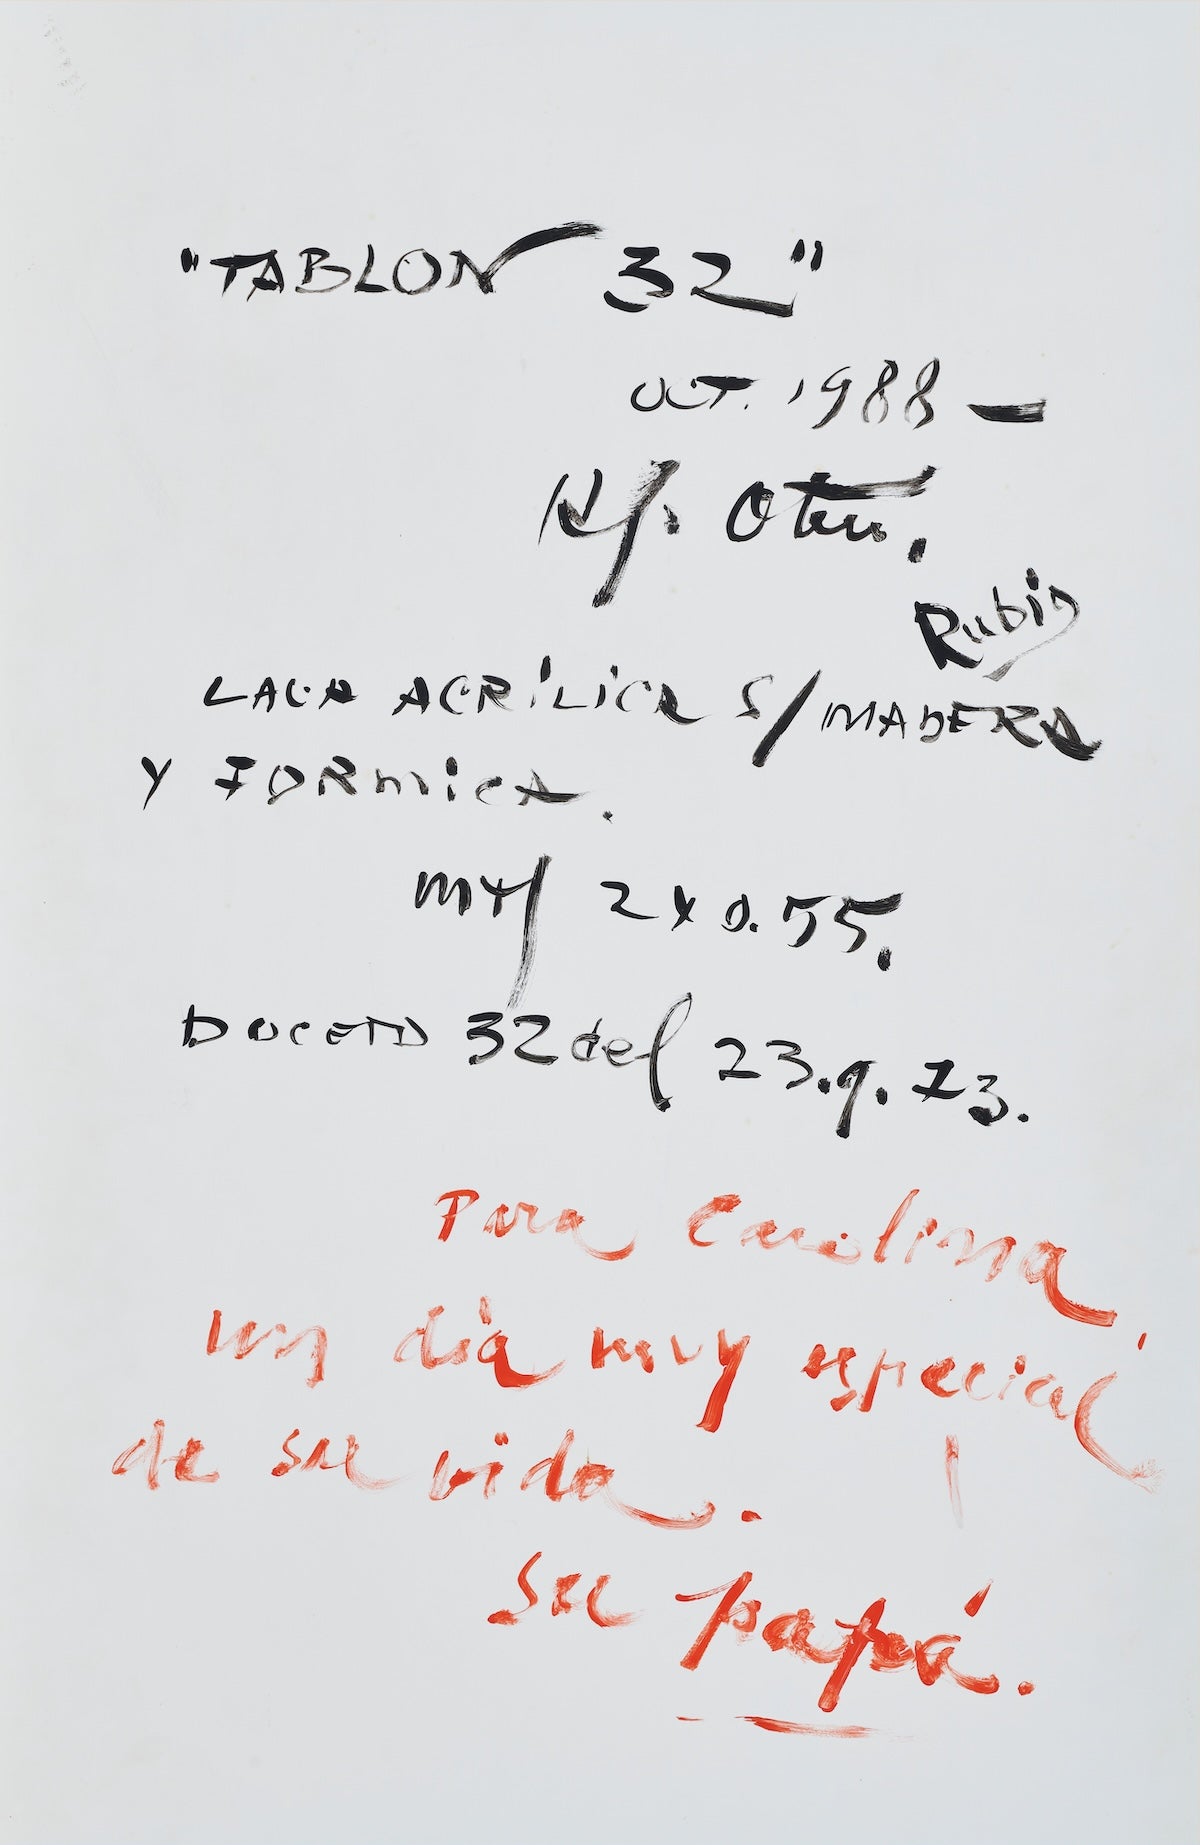 "TABLON 32"
OCT. 1988 —
A. Otero.
Rubio
LACA ACRÍLICA S/MADERA
Y FORMICA.
2 x 0.55.
BOCETO 32 del 23.9.73.
Para Carolina,
un día muy especial
de su vida.
Su papá.